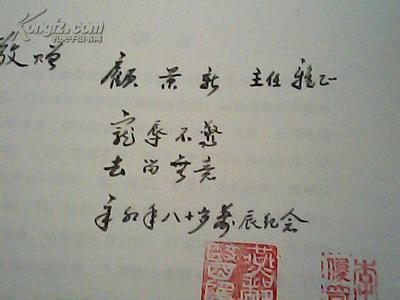 Kongfz.com
孔夫子旧书网
敬赠 顾景新 主任 雅正
宠辱不惊
去留无意
八十岁寿辰纪念